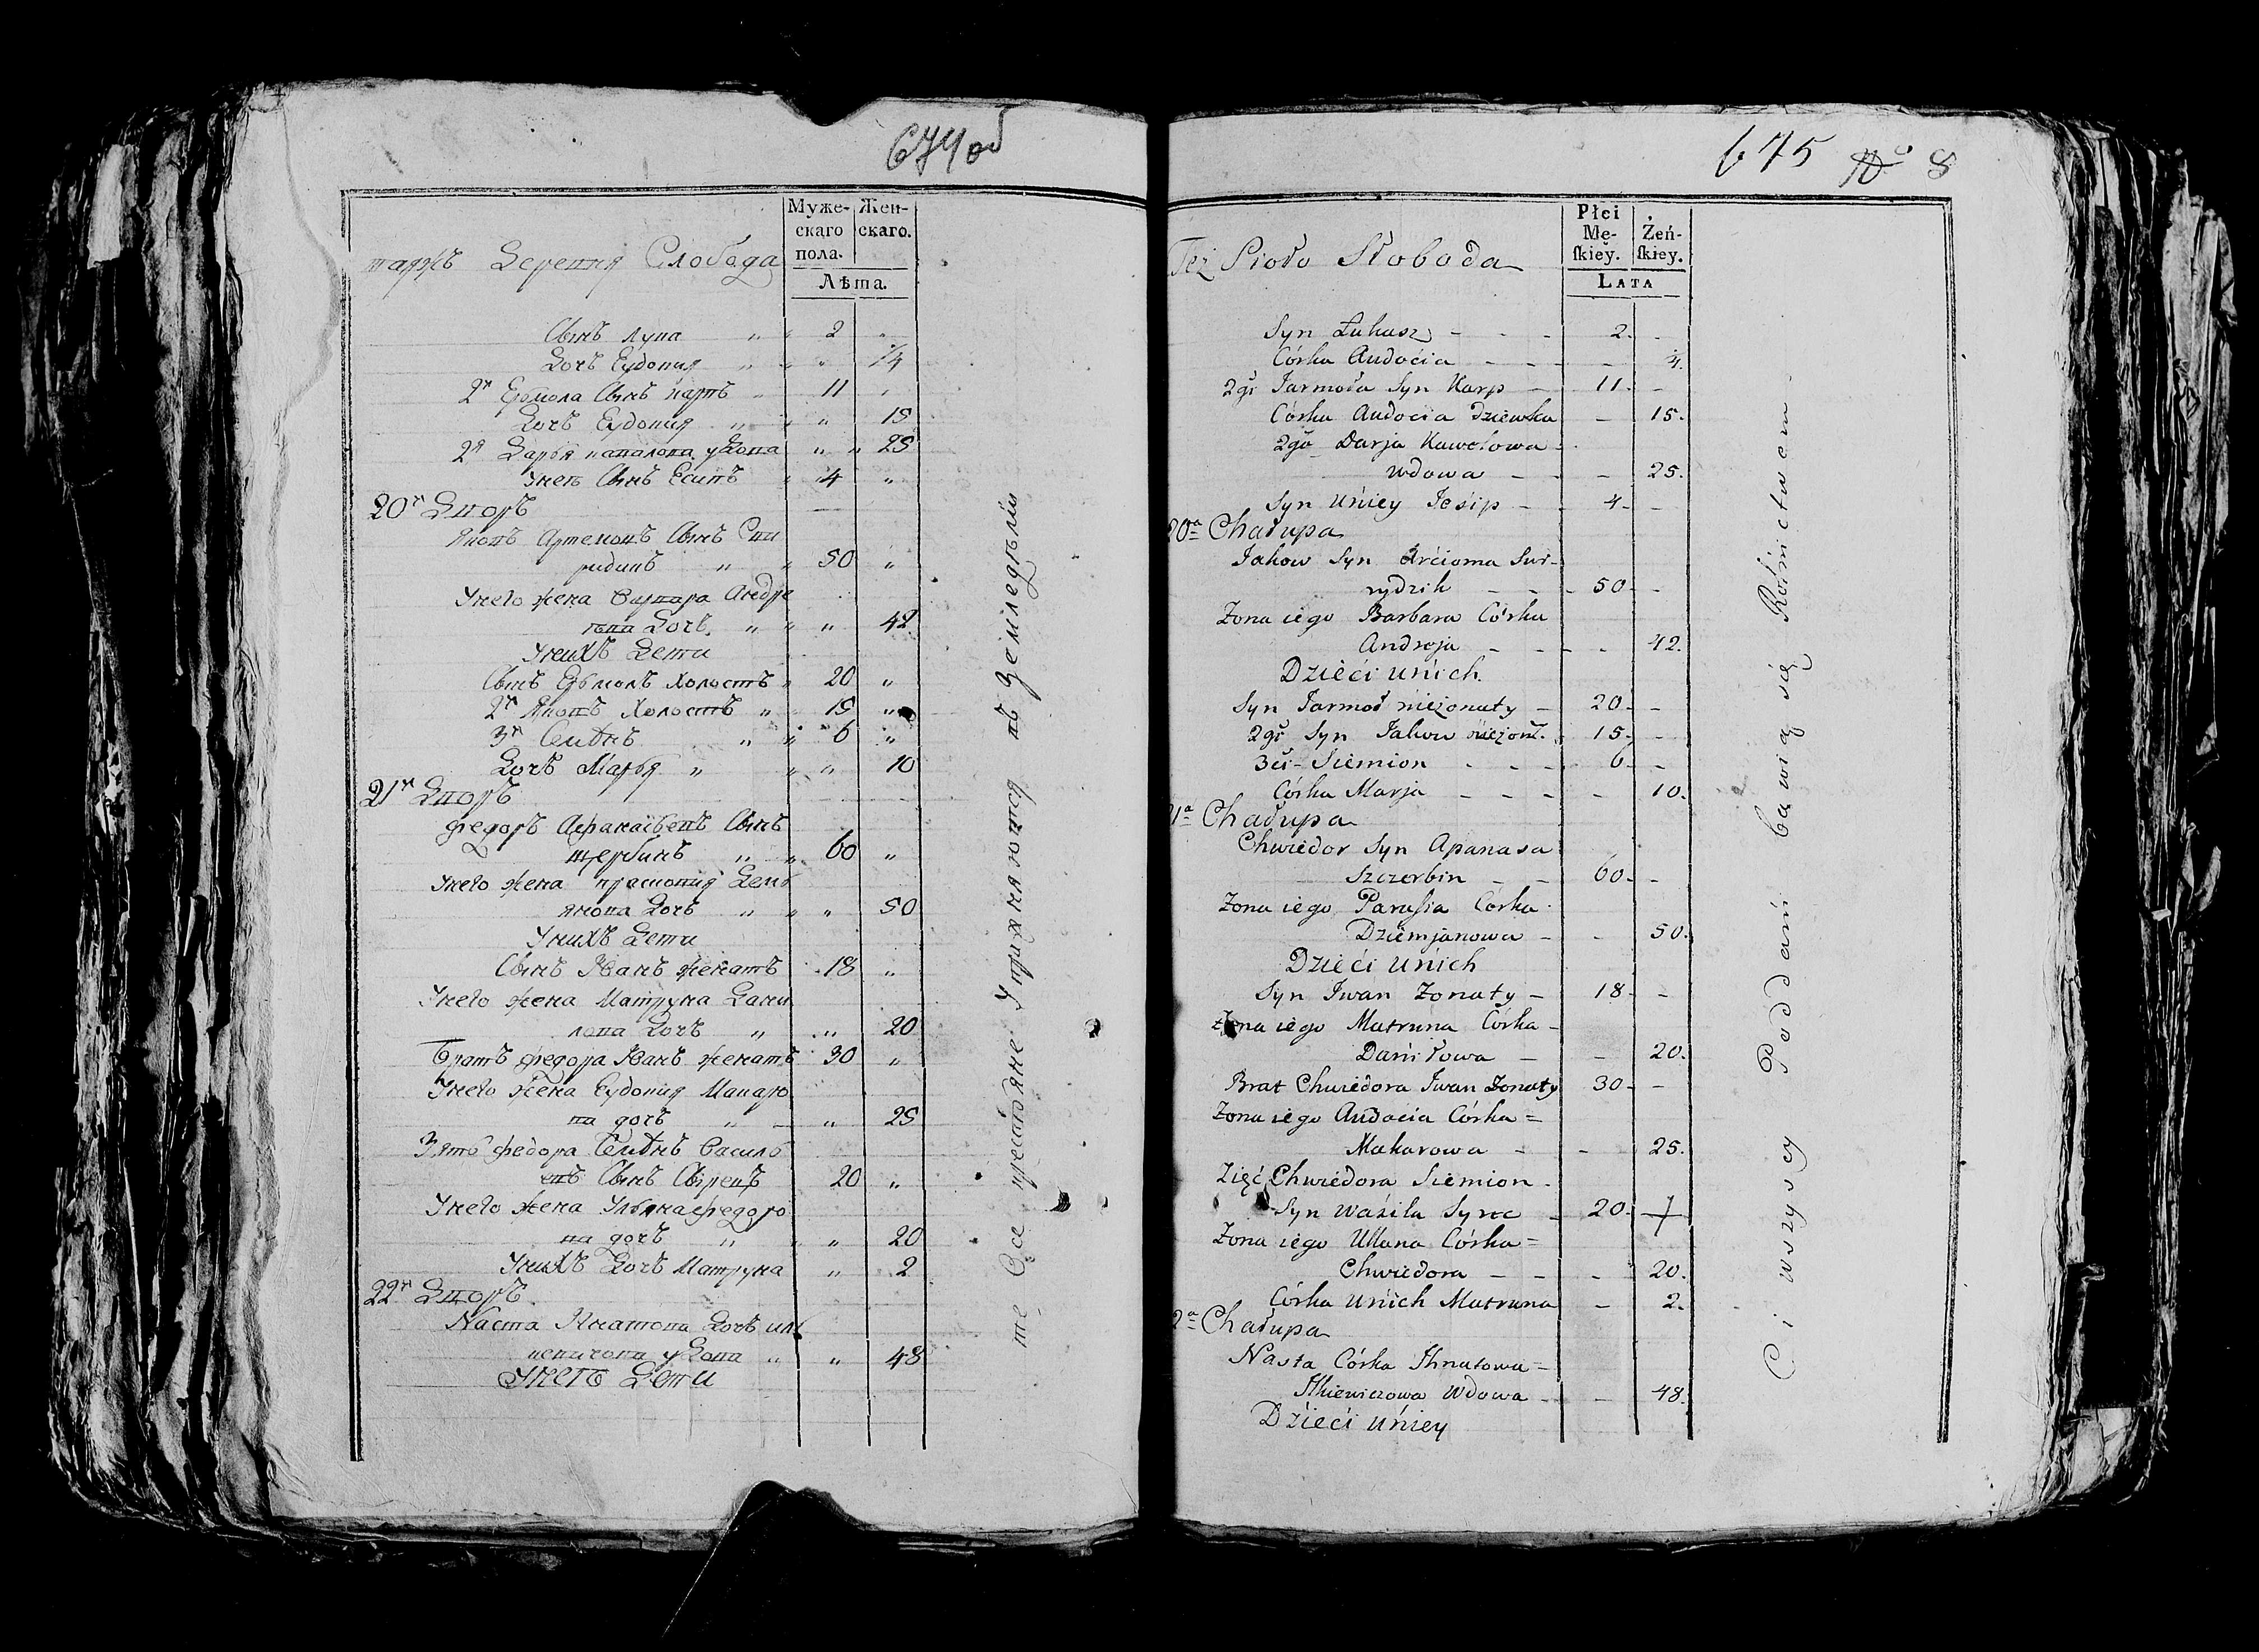 674об
Муже- Жен-
скаго скаго.
пола.
Лѣта.
таяжъ Деревня Слобода
Сынъ лука " " 2 "
Дочь Еудокия " " " 1/4
2й Ермола Сынъ карпъ " 11 "
Дочь Еудокия " " " 15
2я Дарья вдова " " 25
Унеѣ Сынъ Есипъ " 4 "
20й Дворъ
Яковъ Артемовъ Сынъ Сви
ридикъ " " 50 "
Унего жена Варвара Андре
ѣва Дочь " " " 42
Унихъ Дети
Сынъ Ермолъ Холостъ " 20 "
2й Яковъ Холостъ " " 15 "
3й Семѣнъ " " 6 "
Дочь Марья " " " 10
21й Дворъ
Федоръ Афанасьевъ Сынъ
щербинъ " " 60 "
Унего жена прасковия Демь
янова Дочь " " " 50
Унихъ Дети
Сынъ Иванъ женатъ 18 "
Унего жена Матруна Дани
лова Дочь " " 20
Братъ федора Иванъ женатъ 30 "
Унего жена Еудокия Макаро
ва дочь " " 25
Зять федора Семѣнъ Василь
евъ Сынъ Сырецъ 20 "
Унего жена Ульяна федоро
ва дочь " " " 20
Унихъ Дочь Матруна " 2
22й Дворъ
Наста Игнатова Дочь иль
кевичова удова " " 48
Унеѣ Дети
те Все крестьяне Упражняются въ Земледѣлии
675 No 8
Płci
Mę- Żeń-
skiey. skiey.
LATA
Też Sioło Słoboda
Syn Łukasz - - - 2. -
Córka Audocia - - - - 4.
2gi Jarmoła Syn Karp - 11. -
Córka Audocia Dziewka - 15.
2go Darja Kawelowa -
wdowa - - - 25.
Syn Uniey Josip - - 4. -
20a Chałupa
Jakow Syn Arcioma Swi-
rydzik - - - 50. -
Żona iego Barbara Córka
Andreja - - - - 42.
Dzieci Unich
Syn Jarmoł nieżonaty - 20. -
2gi Syn Jakow nieżont. - 15. -
3ci - Siemion - - - 6. -
Córka Marja - - - - 10.
1a Chałupa
Chwiedor Syn Apanasa
Szczerbin - - 60. -
Żona iego Parasia Córka
Dziemjanowa - - 50.
Dzieci Unich
Syn Iwan Żonaty - 18. -
Żona iego Matruna Córka -
Daniłowa - - 20.
Brat Chwiedora Iwan Żonaty 30. -
Żona iego Audocia Córka =
Makarowa - - 25.
Zięć Chwiedora Siemion -
Syn Wasila Syrec - 20. -
Żona iego Ullana Córka =
Chwiedora - - - 20.
Córka Unich Matruna - 2.
2a Chałupa
Nasta Córka Ihnatowa =
Ilkiewiczowa Wdowa - - 48.
Dzieci Uniey
Ci wszyscy Poddani bawią się Rolnictwem.